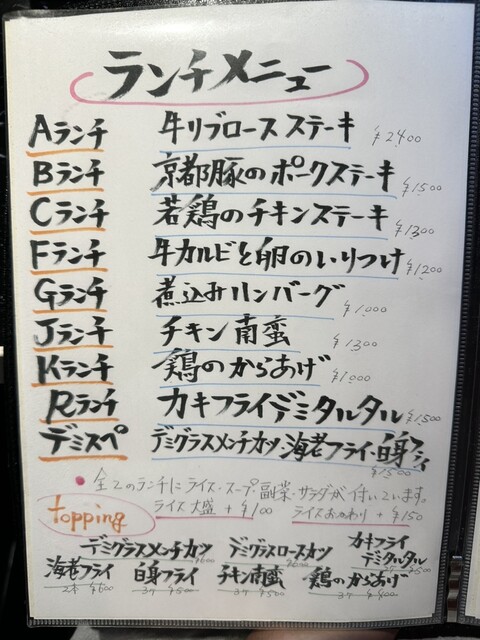 ランチメニュー
Aランチ 牛リブロースステーキ ¥2400
Bランチ 京都豚のポークステーキ ¥1500
Cランチ 若鶏のチキンステーキ ¥1300
Fランチ 牛カルビと卵のいりつけ ¥1200
Gランチ 煮込みハンバーグ ¥1,000
Jランチ チキン南蛮 ¥1300
Kランチ 鶏のからあげ ¥1000
Rランチ カキフライデミタルタル ¥1500
デミスペ デミグラスメンチカツ・海老フライ・白身フライ ¥1500
全てのランチにライス・スープ・副菜・サラダが付いています。
ライス大盛 +¥100 ライスおかわり +¥150
topping
デミグラスメンチカツ デミグラスロースカツ カキフライデミタルタル
海老フライ 2本 ¥600 白身フライ 3ヶ ¥500 チキン南蛮 3ヶ ¥500 鶏のからあげ 3ヶ ¥400